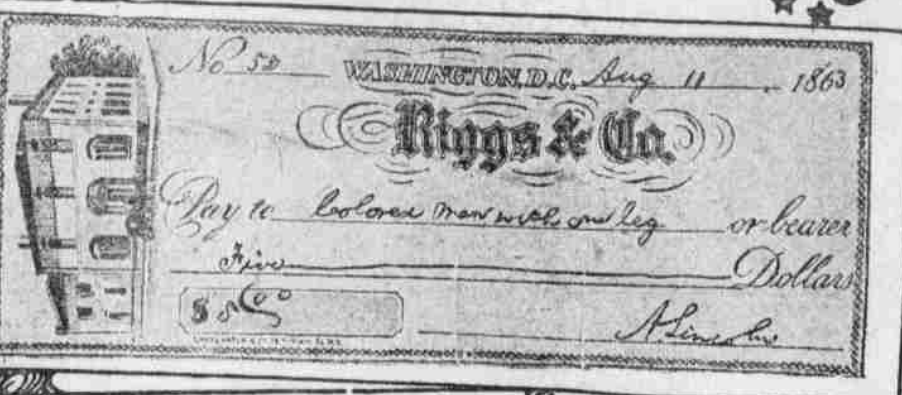 No 58 WASHINGTON, D.C. Aug 11 1863
Riggs & Co.
Pay to Colored man with one leg or bearer
Five Dollars
$5 00
A Lincoln